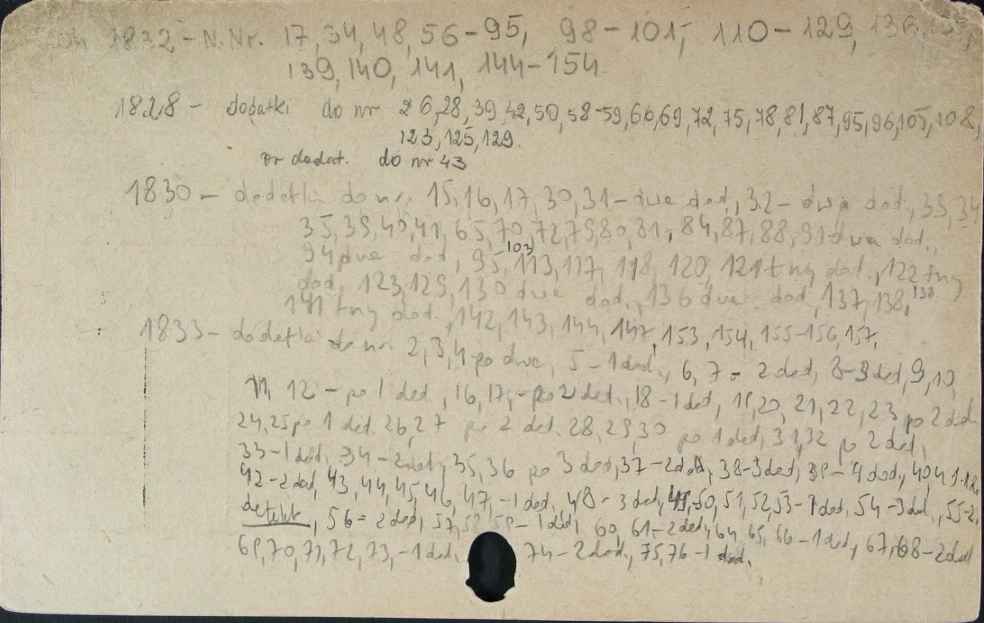 1832 - N.Nr. 17, 34, 48, 56-95, 98-101, 110-129, 136,
139, 140, 141, 144-154
1828 - dodatki do nr 26, 28, 39, 42, 50, 58-59, 66, 69, 72, 75, 78, 81, 87, 95, 96, 105, 108,
123, 125, 129.
dodat. do nr 43
1830 - dodatki do nr. 15, 16, 17, 30, 31 - dwa dod., 32 - dwa dod., 33, 34
35, 39, 40, 41, 65, 70, 72, 79, 80, 81, 84, 87, 88, 91 dwa dod.,
94 dwa dod., 95, 103, 113, 117, 118, 120, 121 trzy dod., 122 trzy
dod., 123, 129, 130 dwa dod., 136 dwa dod., 137, 138,
141 trzy dod., 142, 143, 144, 147, 153, 154, 155-156, 157.
1833 - dodatki do nr. 2, 3, 4 po dwa, 5 - 1 dod., 6, 7 - 2 dod, 8 - 3 dod, 9, 10
11, 12 - po 1 dod., 16, 17, - po 2 dod., 18 - 1 dod, 19, 20, 21, 22, 23 po 2 dod.
24, 25 po 1 dod. 26, 27 po 2 dod. 28, 29, 30 po 1 dod, 31, 32 po 2 dod,
33 - 1 dod, 34 - 2 dod, 35, 36 po 3 dod, 37 - 2 dod, 38 - 3 dod, 39 - 4 dod,
42 - 2 dod, 43, 44, 45, 46, 47, - 1 dod., 48 - 3 dod, 49, 50, 51, 52, 53 - 1 dod, 54 - 3 dod., 55 - 2
, 56 - 2 dod, 57, 58, 59 - 1 dod, 60, 61 - 2 dod, 64, 65, 66 - 1 dod, 67, 68 - 2 dod
69, 70, 71, 72, 73, - 1 dod. 74 - 2 dod., 75, 76 - 1 dod.